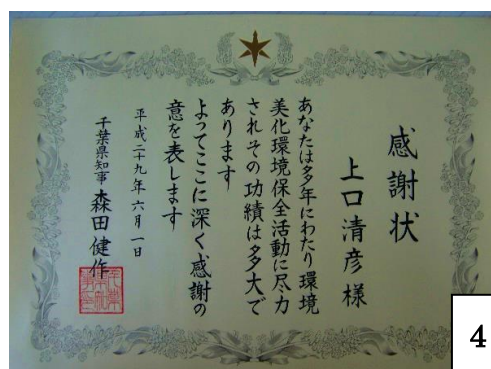 感謝状
上口清彦様
あなたは多年にわたり環境
美化環境保全活動に尽力
されその功績は多大で
あります
よってここに深く感謝の
意を表します
平成二十九年六月一日
千葉県知事 森田健作
4